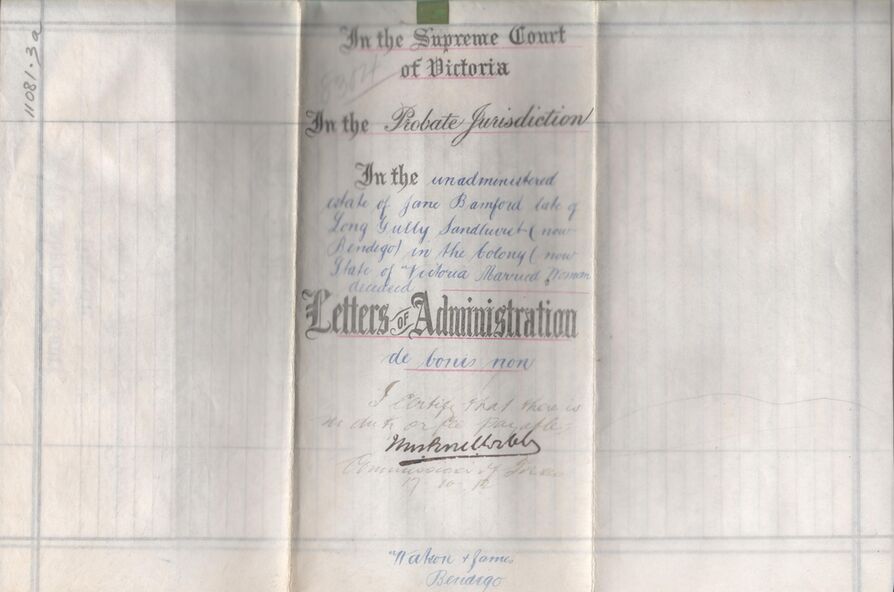 11081·3a
In the Supreme Court
of Victoria
8304
In the Probate Jurisdiction
In the unadministered
estate of Jane Bamford late of
Long Gully Sandhurst (now
Bendigo) in the Colony (now
State of Victoria Married Woman
deceased
Letters of Administration
de bonis non
I certify that there is
no duty or fee payable
Commissioner of Taxes
17 10 12
Watson & James
Bendigo